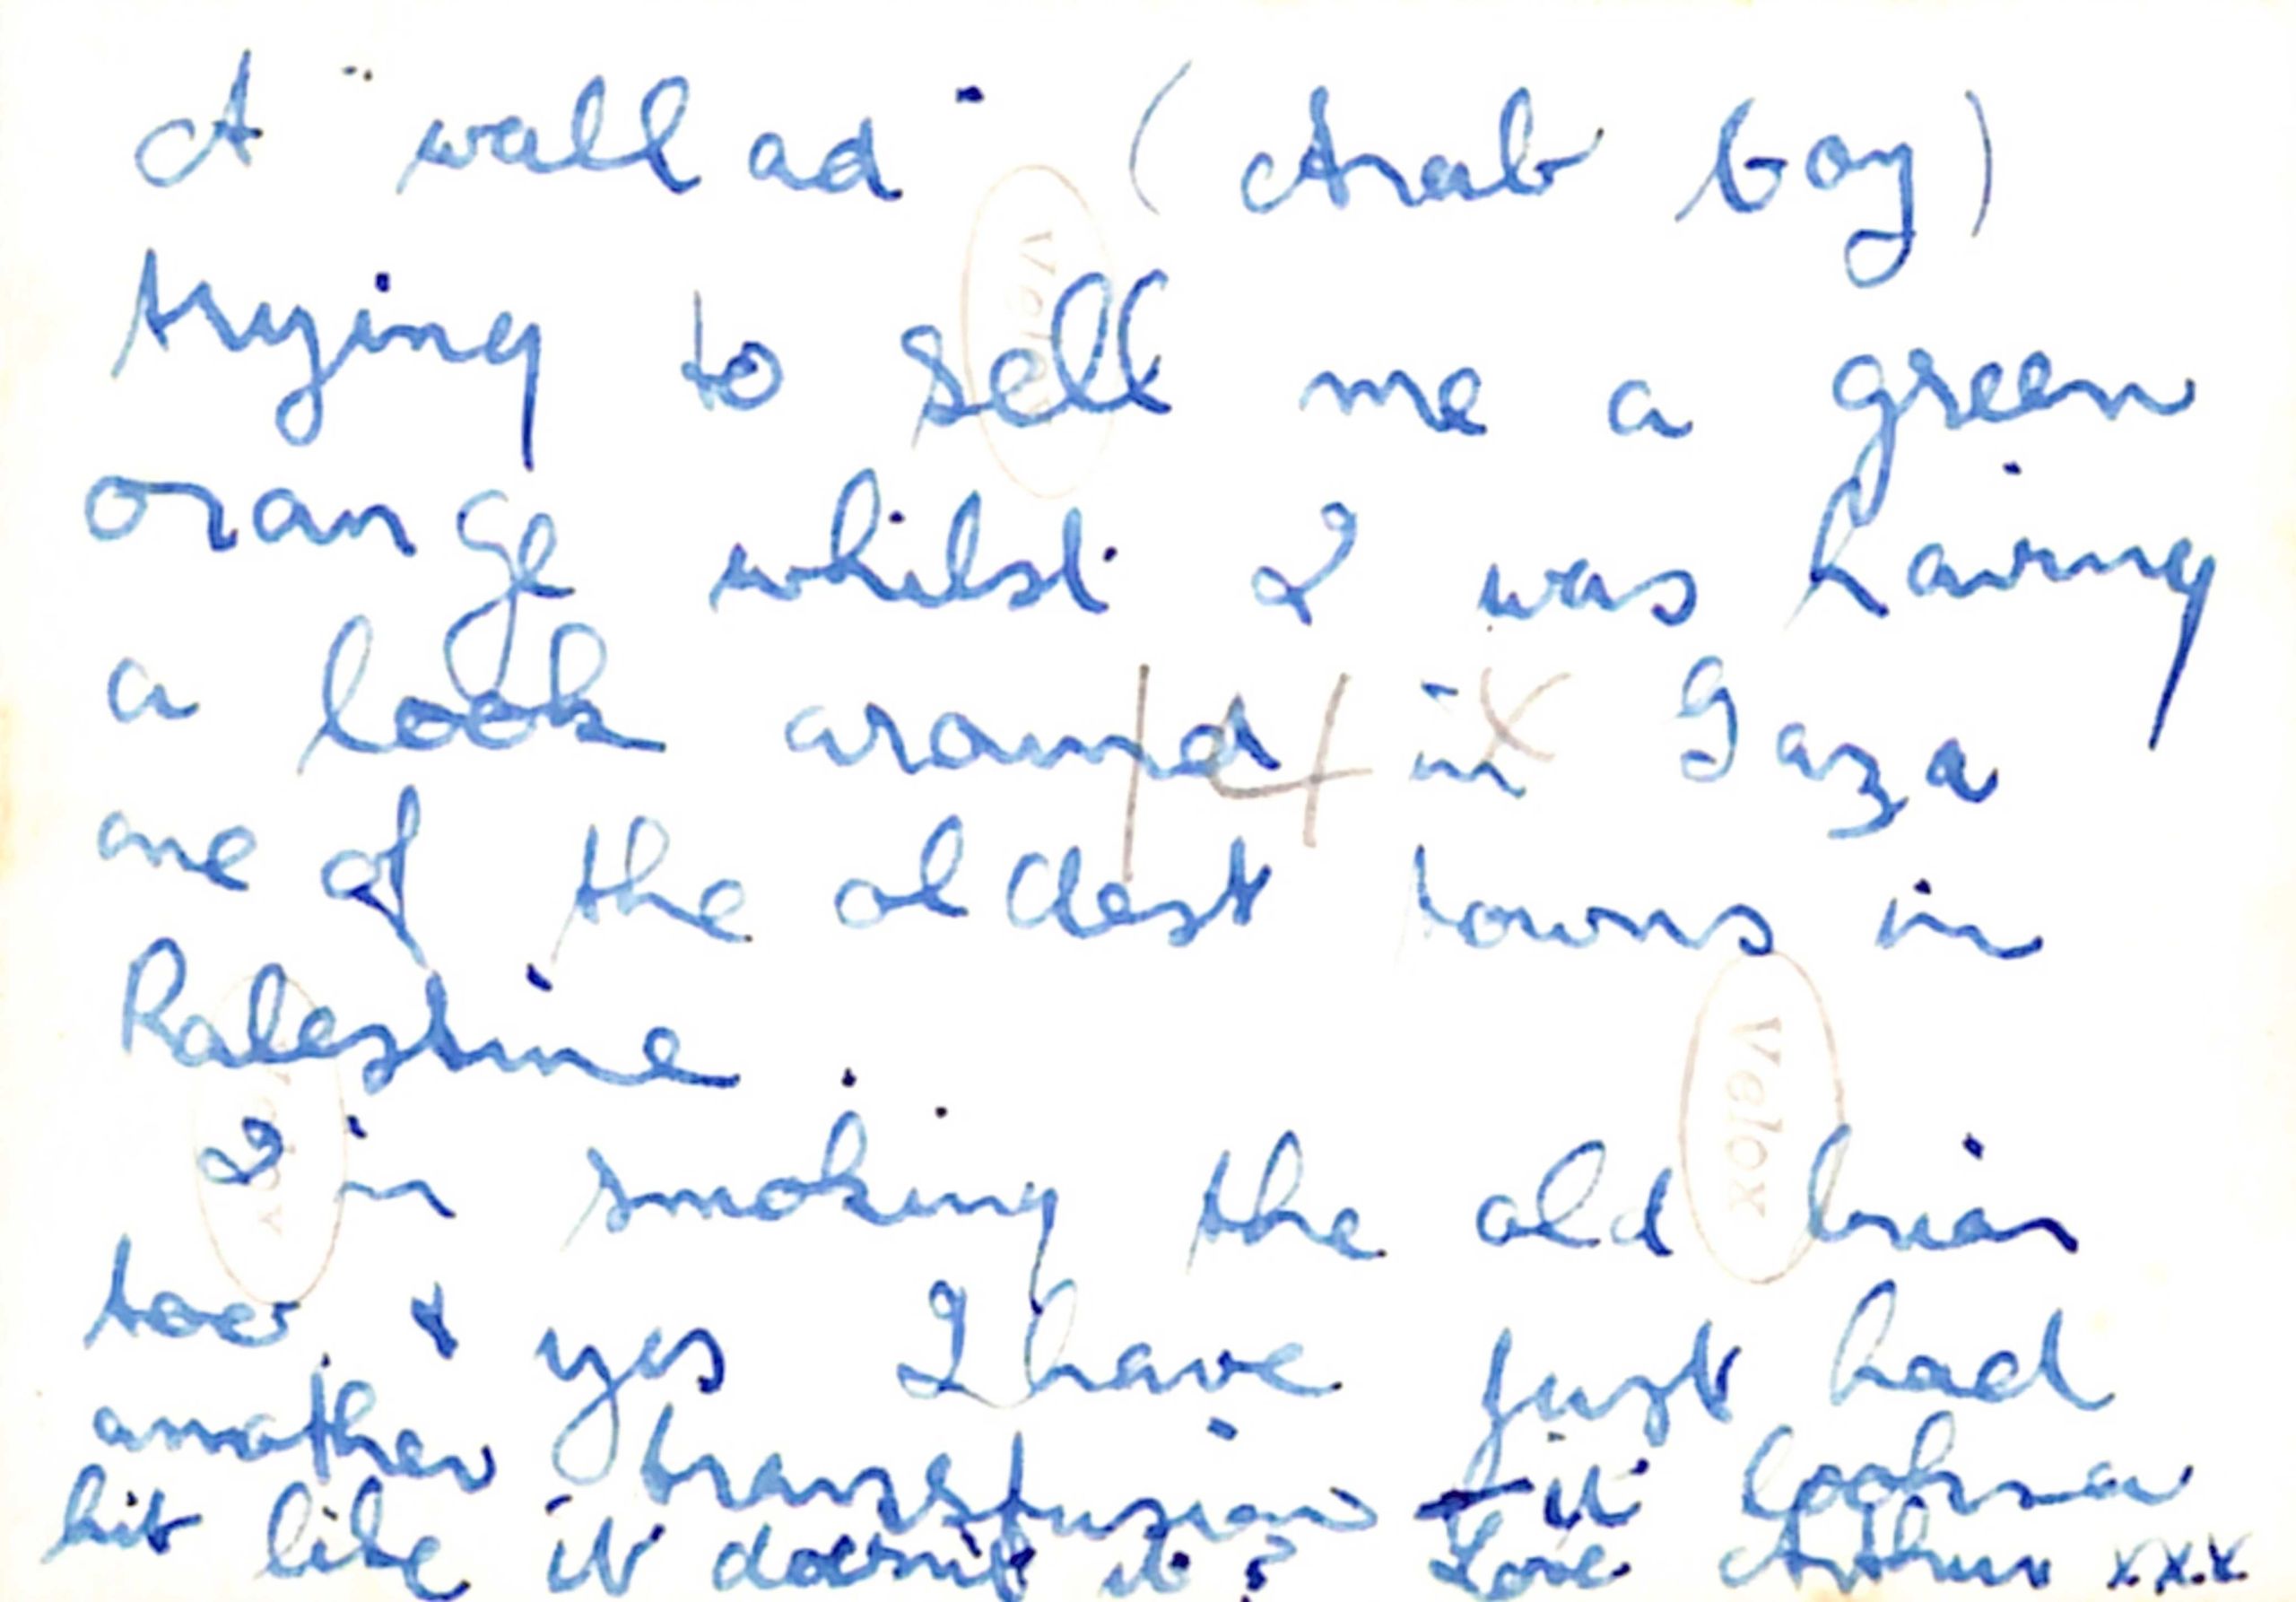 A "wallad" (Arab boy)
trying to sell me a green
orange whilst I was having
a look around in Gaza
one of the oldest towns in
Palestine.
I'm smoking the old briar
too, & yes I have just had
another transfusion - it looks a
bit like it doesn't it? Love Arthur xxx
Velox
Velox
Velox
14 X